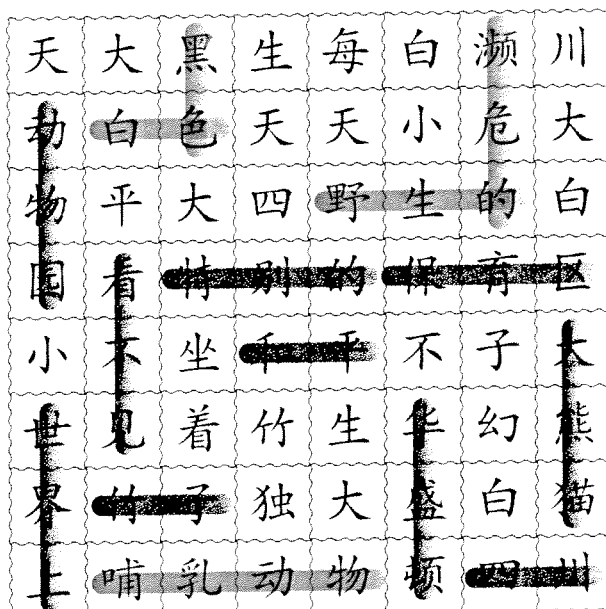 天大黑生每白濒川
动白色天天小危大
物平大四野生的白
园看特别的保育区
小不坐和平不子大
世见着竹生华幻熊
界竹子独大盛白猫
上哺乳动物顿四川